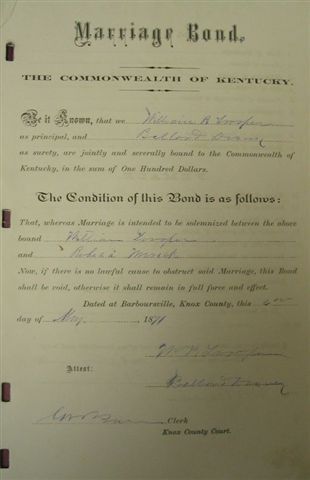 Marriage Bond.
THE COMMONWEALTH OF KENTUCKY.
Be it Known, that we William
as principal, and
as surety, are jointly and severally bound to the Commonwealth of
Kentucky, in the sum of One Hundred Dollars.
The Condition of this Bond is as follows:
That, whereas Marriage is intended to be solemnized between the above
bound William
and
Now, if there is no lawful cause to obstruct said Marriage, this Bond
shall be void, otherwise it shall remain in full force and effect.
Dated at Barboursville, Knox County, this
day of May 1871
Attest:
Clerk
Knox County Court.